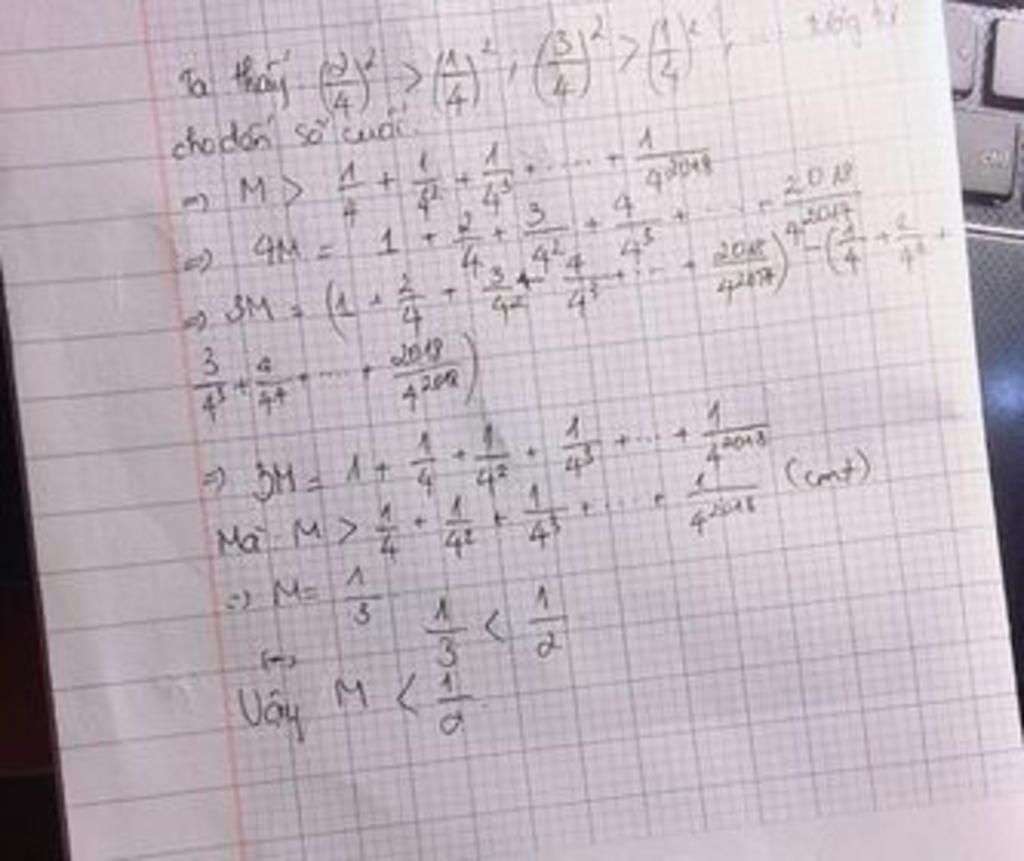 Ta thấy (2/4)² > (1/4)², (3/4)² > (1/4)², ....
cho đến số cuối.
=> M > 1/4 + 1/4² + 1/4³ + ..... + 1/4²⁰¹⁸
=> 4M = 1 + 2/4 + 3/4² + 4/4³ + ... + 2018/4²⁰¹⁷
=> 3M = (1 + 2/4 + 3/4² + 4/4³ + ... + 2018/4²⁰¹⁷) - (1/4 + 2/4² +
3/4³ + 4/4⁴ + .... + 2018/4²⁰¹⁸)
=> 3M = 1 + 1/4 + 1/4² + 1/4³ + ... + 1/4²⁰¹⁸
Mà M > 1/4 + 1/4² + 1/4³ + .... + 1/4²⁰¹⁸ (cmt)
=> M = 1/3
1/3 < 1/2
Vậy M < 1/2